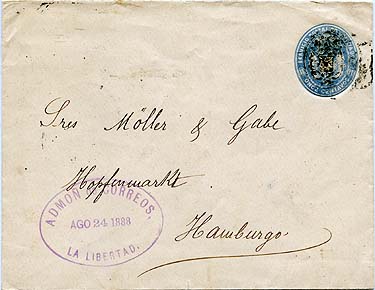 Sres Möller & Gabe
Hopfenmarkt
Hamburgo
ADMON DE CORREOS,
AGO 24 1888
LA LIBERTAD.
ONCE CENTAVOS